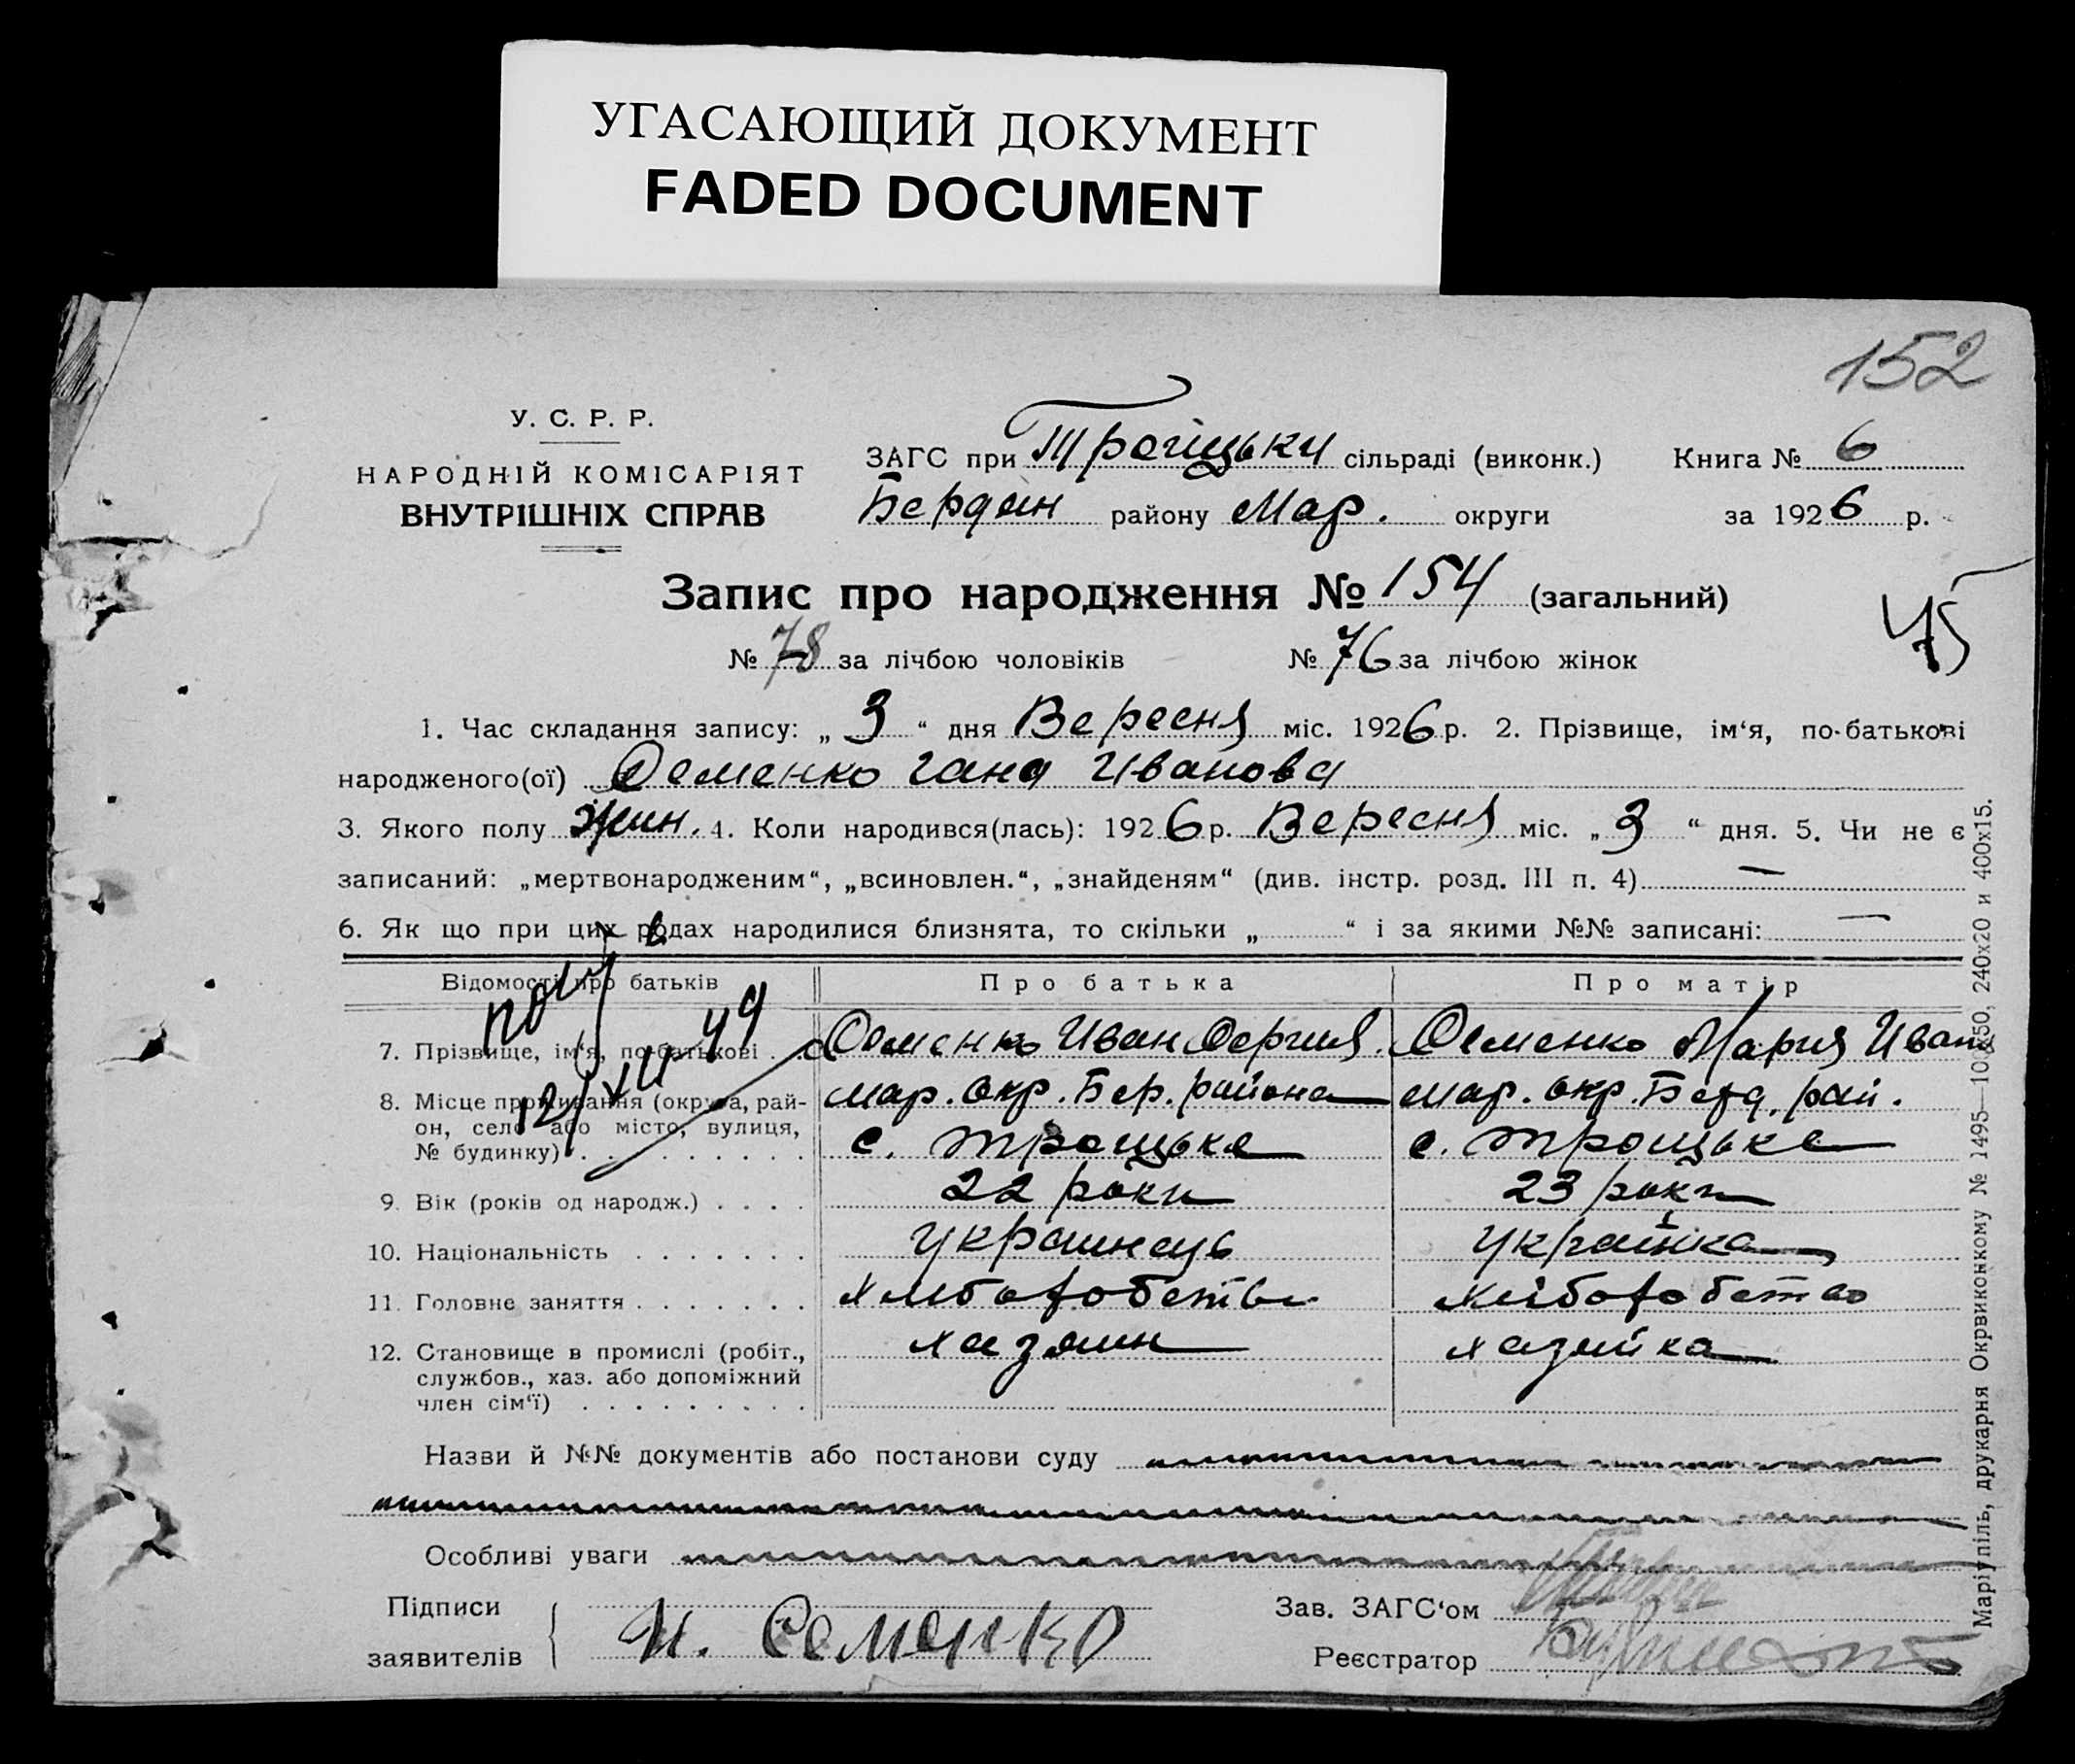 УГАСАЮЩИЙ ДОКУМЕНТ
FADED DOCUMENT
152
У. С. Р. Р.
НАРОДНІЙ КОМІСАРІЯТ
ВНУТРІШНІХ СПРАВ
ЗАГС при Троїцьки сільраді (виконк.) Книга № 6
Бердян району Мар. округи за 1926 р.
Запис про народження № 154 (загальний)
45
№ 78 за лічбою чоловіків № 76 за лічбою жінок
1. Час складання запису: „ 3 “ дня Вересня міс. 1926 р. 2. Прізвище, ім‘я, по-батькові
народженого(ої) Семенко Гана Иванова
3. Якого полу жин. 4. Коли народився(лась): 1926 р. Вересня міс. „ 3 “ дня. 5. Чи не є
записаний: „мертвонародженим“, „всиновлен.“, „знайденям“ (див. інстр. розд. III п. 4) —
6. Як що при цих родах народилися близнята, то скільки „ “ і за якими №№ записані: —
Відомості про батьків Про батька Про матір
7. Прізвище, ім‘я, по-батькові . . Семенко Иван Сергия. Семенко Мария Иван
8. Місце проживання (округа, рай-
он, село або місто, вулиця,
№ будинку) . . . . . . . . .
Мар. Окр. Бер. района Мар. окр. Берд. рай.
с. Троицьке с. Троицьке
9. Вік (років од народж.) . . . . 22 роки 23 роки
10. Національність . . . . . . . Украинець Українка
11. Головне заняття . . . . . . . Хлиборобство Хліборобство
12. Становище в промислі (робіт.,
службов., хаз. або допоміжний
член сім‘ї) . . . . . . . . .
хазяин хазяйка
Назви й №№ документів або постанови суду
Особливі уваги
Підписи
заявителів
И. Семенко
Зав. ЗАГС‘ом
Реєстратор
Маріупіль, друкарня Окрвиконкому № 1495—100х50, 240х20 и 400х15.